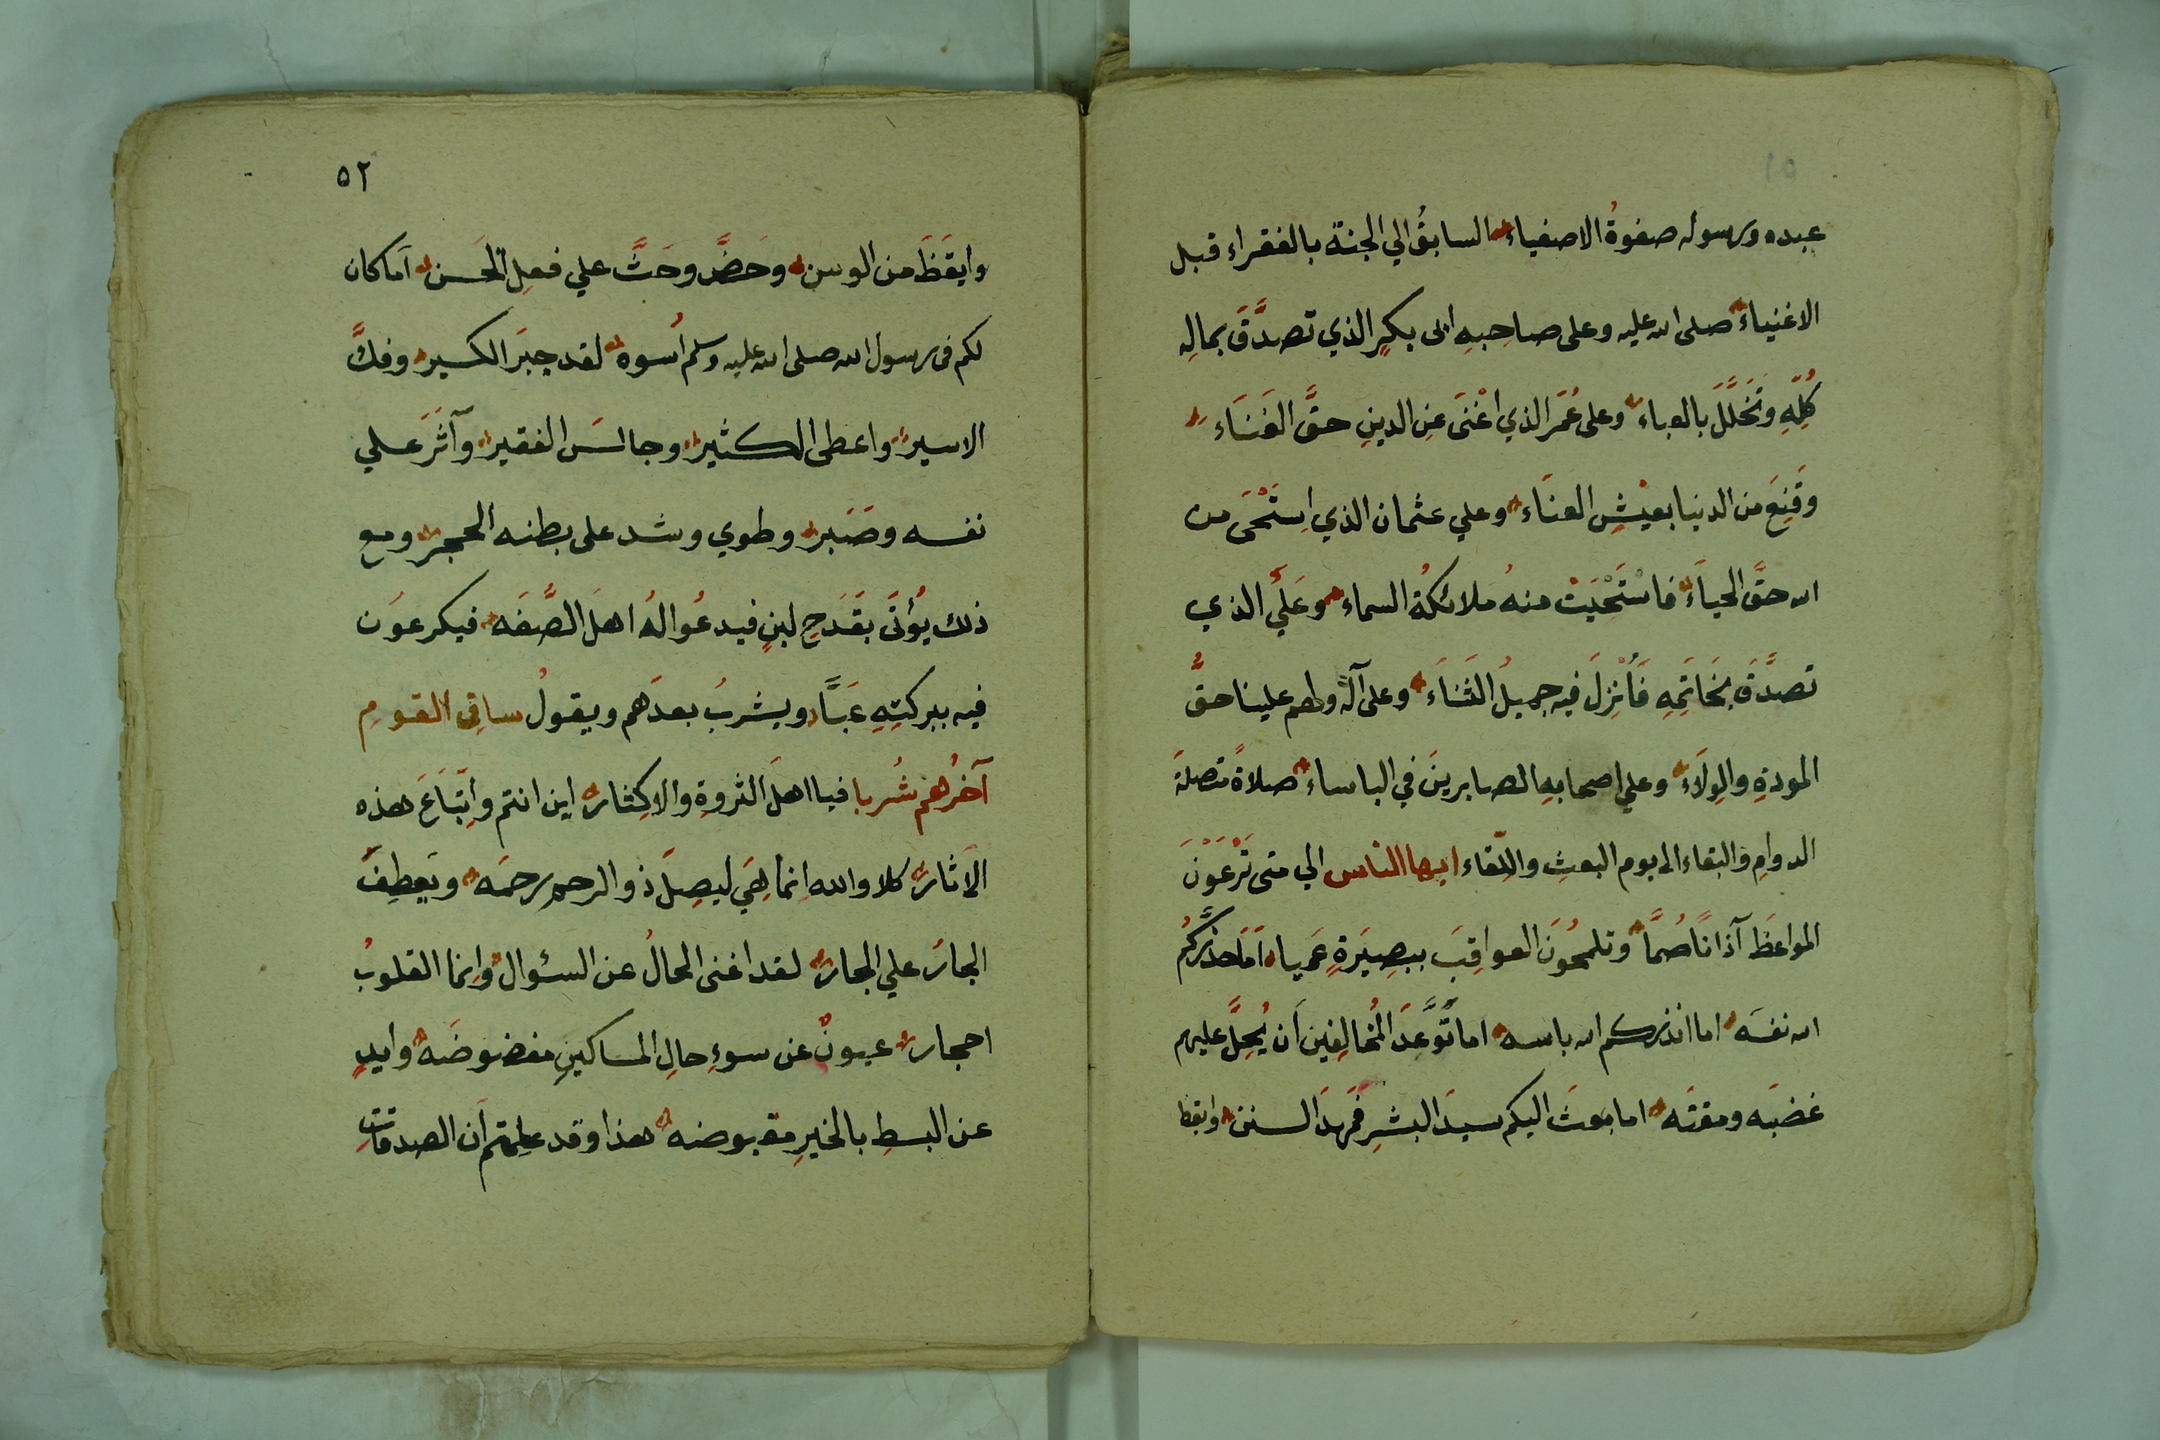 عبده ورسوله صفوةُ الاصفياء السابقُ الي الجنة بالفقراء قبل
الاغنياء صلى الله عليه وعلى صاحبهِ ابى بكرٍ الذي تصدَّقَ بمالِه
كُلِّهِ وتَخَلَّلَ بالعباء وعلى عُمَر الذي اَغْنَى عنِ الدينِ حقَّ الغَنَاء
وقَنِعَ من الدنيا بعيْشِ العنَاء وعلي عثمان الذي اِستَحْىَ من
الله حقَّ الحياَء فاسْتَحْيَتْ منهُ ملائكةُ السماء وعَليٍ الذي
تصدَّقَ بخَاتَمِهِ فَأُنْزِلَ فيه جميلُ الثَنَاَء وعلى آلهِ ولهم علينا حقُّ
المودةِ والوِلَاء وعلي اصحابهِ الصابرينَ في الباساء صلاةً متصلةَ
الدوامِ والبقاء الى يوم البعثِ واللِّقاء ايها الناس الي متى تَرْعَوْنَ
المواعظَ آذانًا صُمًّا وتلمحُونَ العواقبَ ببصِيَرةٍ عَمياء اَمَا حذَّركُم
الله نفسَه اما انذركم الله باسه اما تَوَّعدَ المُخالِفين اَن يُحِلَّ عليهم
غضبَه ومقتَه اما بعثَ اليكم سيدَ البشرِ فمَهدَ السنن وايقظ
٥٢
وايقَظَ من الوسن وحَضَّ وحَثَّ علي فعلِ الحَسن اَما كان
لكم فى رسول الله صلى الله عليه وسلم اُسوه لقد جبَر الكسير وفكَّ
الاسير واعطى الكثير وجالسَ الفقير وآثَرَ علي
نفسه وصَبَر وطوي وشد على بطنه الحجر ومع
ذلك يُؤتَى بقَدَحِ لبنٍ فيدعُوا لهُ اهلَ الصُّفَه فيكرعوُن
فيه ببركتِهِ عَبًّا ويشربُ بعدَهم ويقولُ ساقِى القومِ
آخرُهم شُربا فيا اهلَ الثروةِ والاِكِثار اين انتم واِتِّبَاعَ هذه
الآثار كلا والله اِنما هِيَ ليصِلَ ذو الرحمِ رحمَه ويَعطِفَ
الجارُ علي الجار لقد اغنى الحالُ عن السئوال واِنما القلوبُ
احجار عيونٌ عن سوءِ حالِ المساكينِ مغضوضَه وايدٍ
عن البسطِ بالخيرِ مقبوضه هذا وقد علِمتم اَن الصدقاتِ